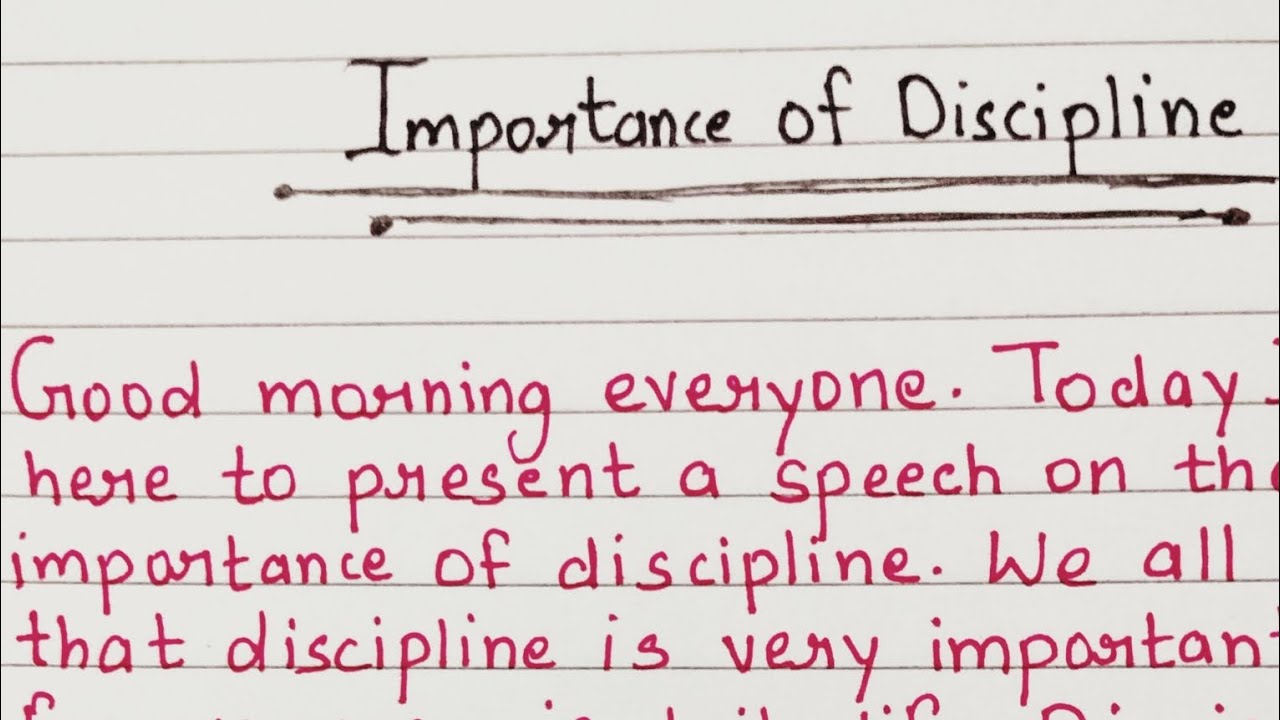 Importance of Discipline
Good morning everyone. Today
here to present a speech on the
importance of discipline. We all
that discipline is very important